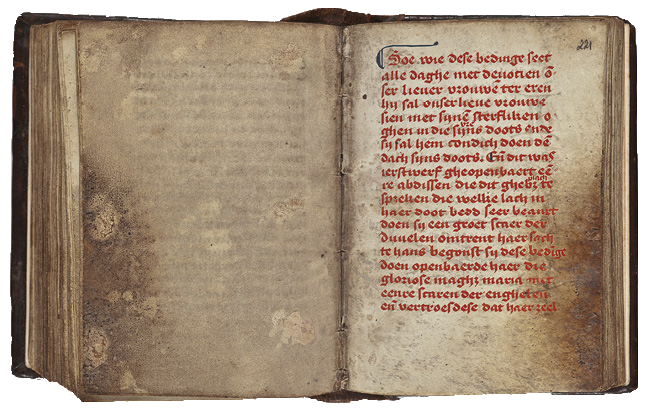 221
Soe wie dese bedinge leet
alle daghe met deuotien õ
ser lieuer vrouwẽ ter eren
hij sal onser lieue vrouwe
sien met sijnẽ sterfliken o
ghen in die sijns doots ende
sij sal hem condich doen dẽ
dach sijns doots. Eñ dit was
ierstwerf gheopenbaert eẽ
re abdissen die dit ghebꝛ plach te
spreken die welke lach in
haer doot bedd seer beanxt
doen sij een groet scaer der
duuelen omtrent haer sach
te hans begonst sij dese bedige
doen openbaerde haer die
gloriose maghꝫ maria met
eenre scaren der enghelen
eñ vertroestese dat haer zeel